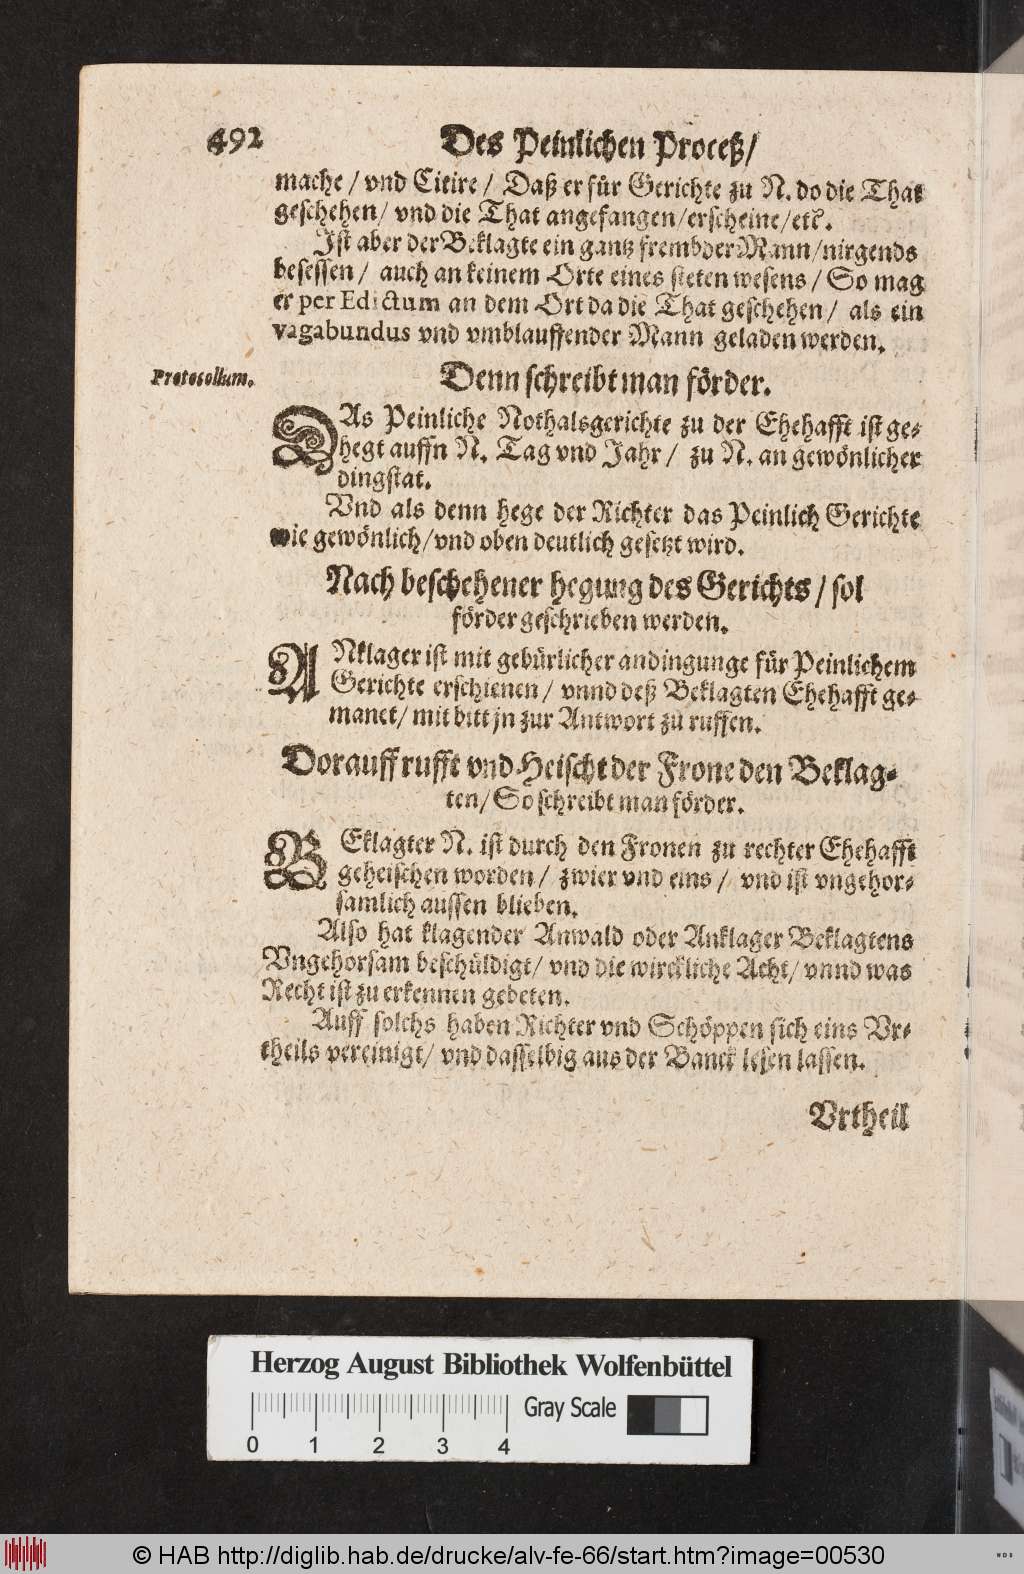 492
Des Peinlichen Proceß/
mache / vnd Citire / Daß er für Gerichte zu N. do die That
geschehen/ vnd die That angefangen/erscheine/etc.
Ist aber der Beklagte ein gantz frembder Mann/nirgends
besessen / auch an keinem Orte eines steten wesens / So mag
er per Edictum an dem Ort da die That geschehen/ als ein
vagabundus vnd vmblauffender Mann geladen werden.
Protocollum.
Denn schreibt man förder.
DAs Peinliche Nothalsgerichte zu der Ehehafft ist ge-
hegt auffn N. Tag vnd Jahr / zu N. an gewönlicher
dingstat.
Vnd als denn hege der Richter das Peinlich Gerichte
wie gewönlich/vnd oben deutlich gesetzt wird.
Nach beschehener hegung des Gerichts / sol
förder geschrieben werden.
ANklager ist mit gebürlicher andingunge für Peinlichem
Gerichte erschienen / vnnd deß Beklagten Ehehafft ge-
manet/ mit bitt jn zur Antwort zu ruffen.
Dorauff rufft vnd Heischt der Frone den Beklag-
ten/ So schreibt man förder.
BEklagter N. ist durch den Fronen zu rechter Ehehafft
geheischen worden / zwier vnd eins / vnd ist vngehor-
samlich aussen blieben.
Also hat klagender Anwald oder Anklager Beklagtens
Vngehorsam beschüldigt/ vnd die wirckliche Acht/ vnnd was
Recht ist zu erkennen gebeten.
Auff solchs haben Richter vnd Schöppen sich eins Vr-
theils vereinigt/ vnd dasselbig aus der Banck lesen lassen.
Vrtheil
Herzog August Bibliothek Wolfenbüttel
0 1 2 3 4
Gray Scale
© HAB http://diglib.hab.de/drucke/alv-fe-66/start.htm?image=00530